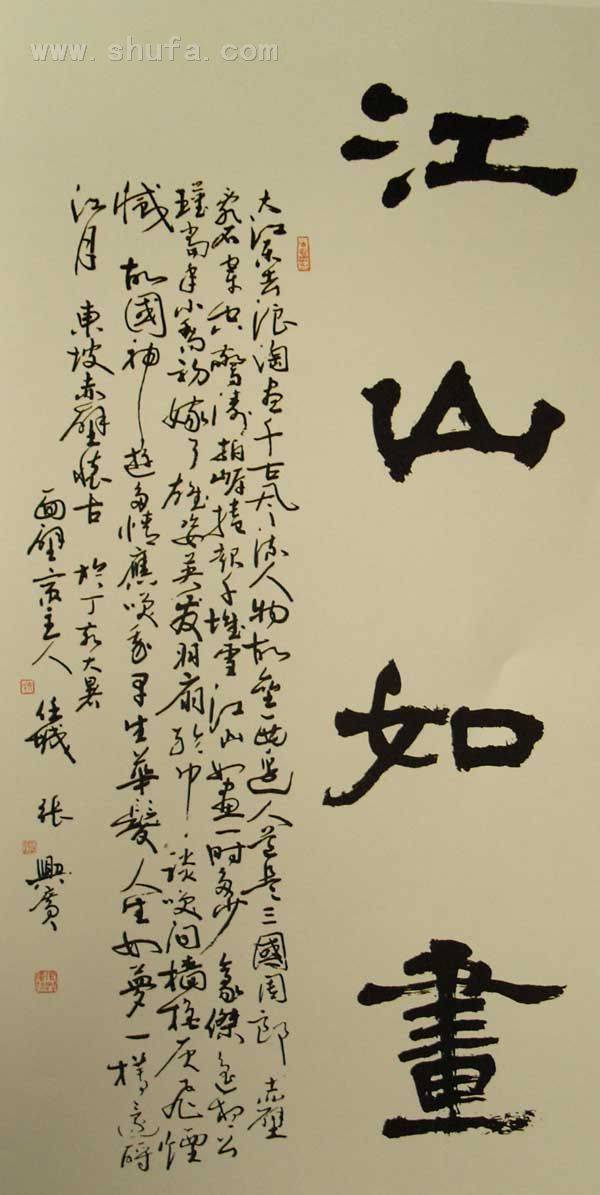 www.shufa.com
江山如畫
大江東去浪淘盡千古風流人物故壘西邊人道是三國周郎赤壁
亂石穿空驚濤拍岸捲起千堆雪江山如畫一時多少豪傑遙想公
瑾當年小喬初嫁了雄姿英發羽扇綸巾談笑間檣櫓灰飛煙
滅故國神遊多情應笑我早生華髮人生如夢一樽還酹
江月 東坡赤壁懷古 於丁亥大暑
面壁齋主人 任城 張興廣